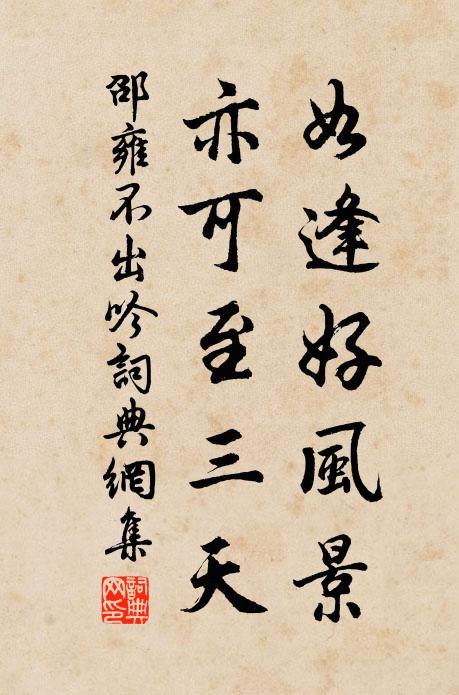 如逢好風景
亦可至三天
邵雍不出吟詞典網集
詞典網印